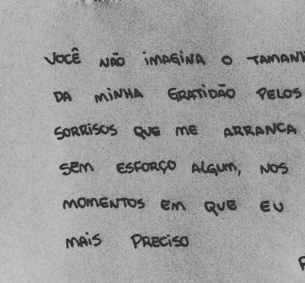 VOCÊ NÃO IMAGINA O TAMANH
DA MINHA GRATIDÃO PELOS
SORRISOS QUE ME ARRANCA
SEM ESFORÇO ALGUM, NOS
MOMENTOS EM QUE EU
MAIS PRECISO